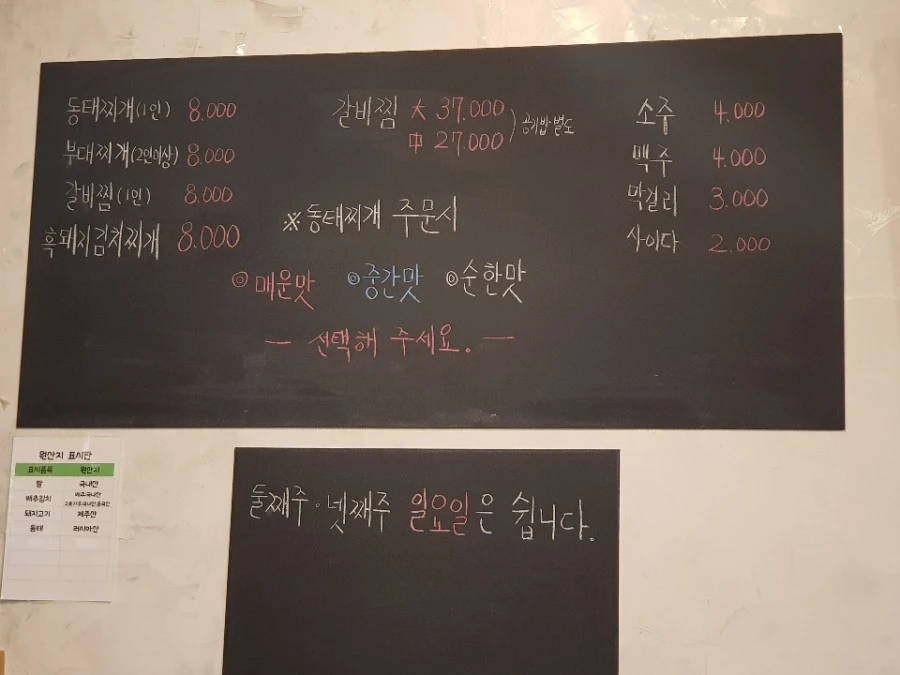 동태찌개(1인) 8.000
부대찌개(2인이상) 8.000
갈비찜(1인) 8.000
흑돼지김치찌개 8.000
갈비찜 大 37.000
中 27.000
공기밥 별도
※동태찌개 주문시
◎매운맛 ◎중간맛 ◎순한맛
— 선택해 주세요. —
소주 4.000
맥주 4.000
막걸리 3.000
사이다 2.000
원산지 표시판
표시품목 원산지
쌀 국내산
배추김치 배추:국내산
고춧가루:국내산,중국산
돼지고기 제주산
동태 러시아산
둘째주·넷째주 일요일은 쉽니다.